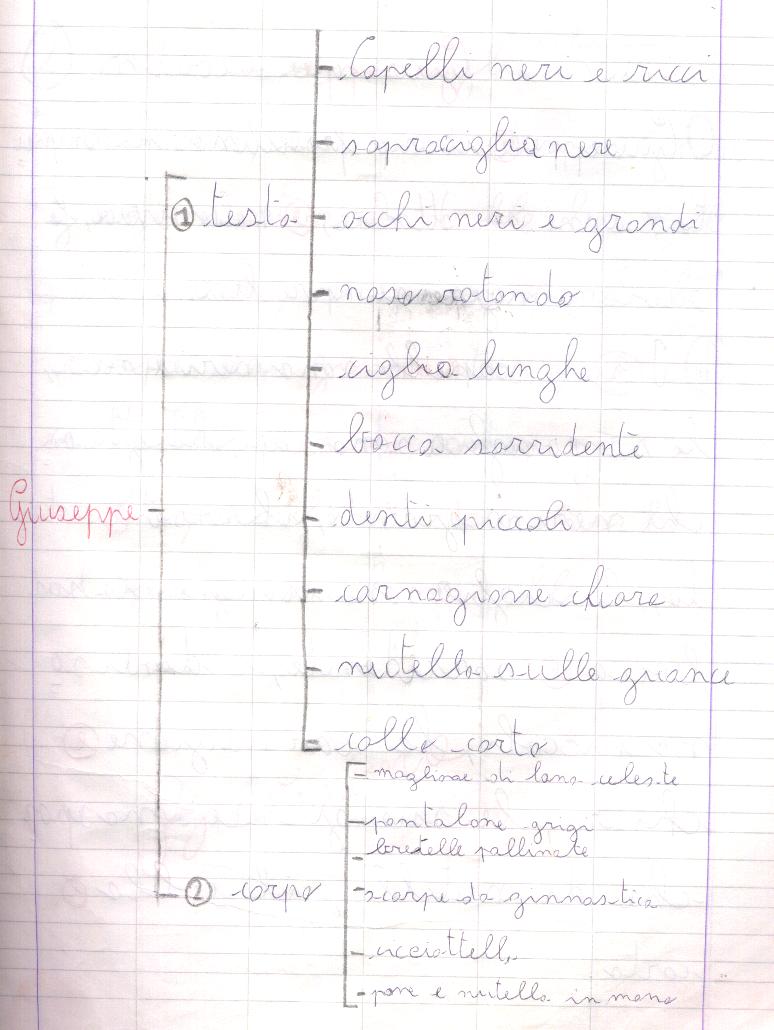 Capelli neri e ricci
sopracciglia nere
① testa
occhi neri e grandi
naso rotondo
ciglia lunghe
bocca sorridente
Giuseppe
denti piccoli
carnagione chiara
nutella sulle guance
collo corto
maglione di lana celeste
pantalone grigi
bretelle pallinate
② corpo
scarpe da ginnastica
pane e nutella in mano